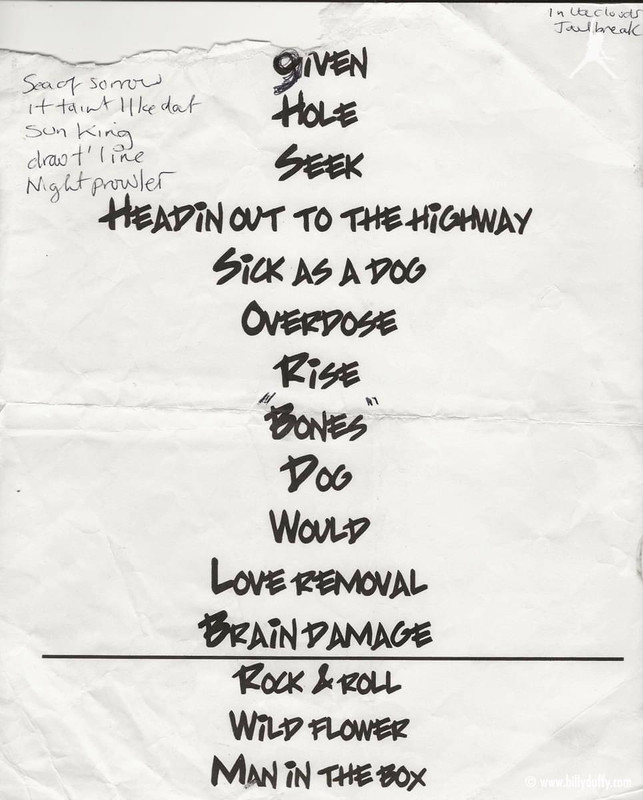 In the clouds
Jailbreak
Sea of sorrow
it taint like dat
Sun King
draw t' line
Night prowler
given
Hole
Seek
Headin out to the highway
Sick as a dog
Overdose
Rise
"Bones"
Dog
Would
Love removal
Brain damage
Rock & roll
Wild flower
Man in the box
© www.billyduffy.com